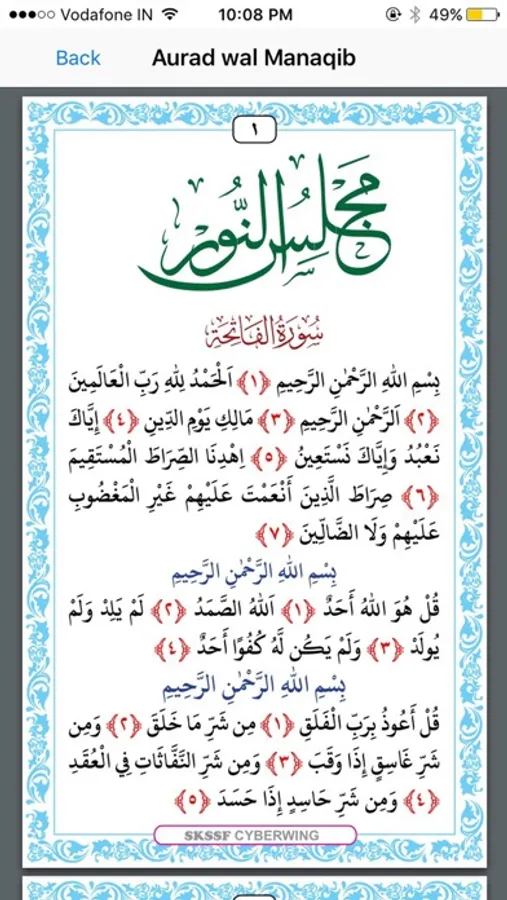 Vodafone IN 10:08 PM 49%
Back Aurad wal Manaqib
١
مَجْلِسُ النُّور
سُورَةُ الْفَاتِحَة
بِسْمِ اللهِ الرَّحْمٰنِ الرَّحِيمِ ﴿١﴾ اَلْحَمْدُ لِلهِ رَبِّ الْعَالَمِينَ
﴿٢﴾ اَلرَّحْمٰنِ الرَّحِيمِ ﴿٣﴾ مَالِكِ يَوْمِ الدِّينِ ﴿٤﴾ إِيَّاكَ
نَعْبُدُ وَإِيَّاكَ نَسْتَعِينُ ﴿٥﴾ اِهْدِنَا الصِّرَاطَ الْمُسْتَقِيمَ
﴿٦﴾ صِرَاطَ الَّذِينَ أَنْعَمْتَ عَلَيْهِمْ غَيْرِ الْمَغْضُوبِ
عَلَيْهِمْ وَلَا الضَّالِّينَ ﴿٧﴾
بِسْمِ اللهِ الرَّحْمٰنِ الرَّحِيمِ
قُلْ هُوَ اللهُ أَحَدٌ ﴿١﴾ اَللهُ الصَّمَدُ ﴿٢﴾ لَمْ يَلِدْ وَلَمْ
يُولَدْ ﴿٣﴾ وَلَمْ يَكُن لَّهُ كُفُوًا أَحَدٌ ﴿٤﴾
بِسْمِ اللهِ الرَّحْمٰنِ الرَّحِيمِ
قُلْ أَعُوذُ بِرَبِّ الْفَلَقِ ﴿١﴾ مِن شَرِّ مَا خَلَقَ ﴿٢﴾ وَمِن
شَرِّ غَاسِقٍ إِذَا وَقَبَ ﴿٣﴾ وَمِن شَرِّ النَّفَّاثَاتِ فِي الْعُقَدِ
﴿٤﴾ وَمِن شَرِّ حَاسِدٍ إِذَا حَسَدَ ﴿٥﴾
SKSSF CYBERWING